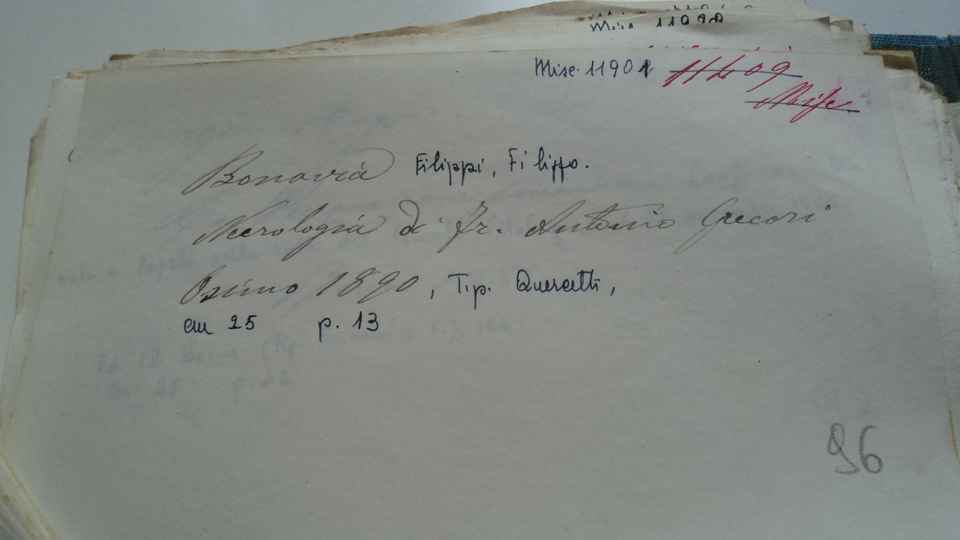 Misc. 11090
Misc. 11901 11409
Misc
Bonavia Filippi, Filippo.
Necrologia di Fr. Antonio Grecori
Osimo 1890, Tip. Quercetti,
cm 25 p. 13
96